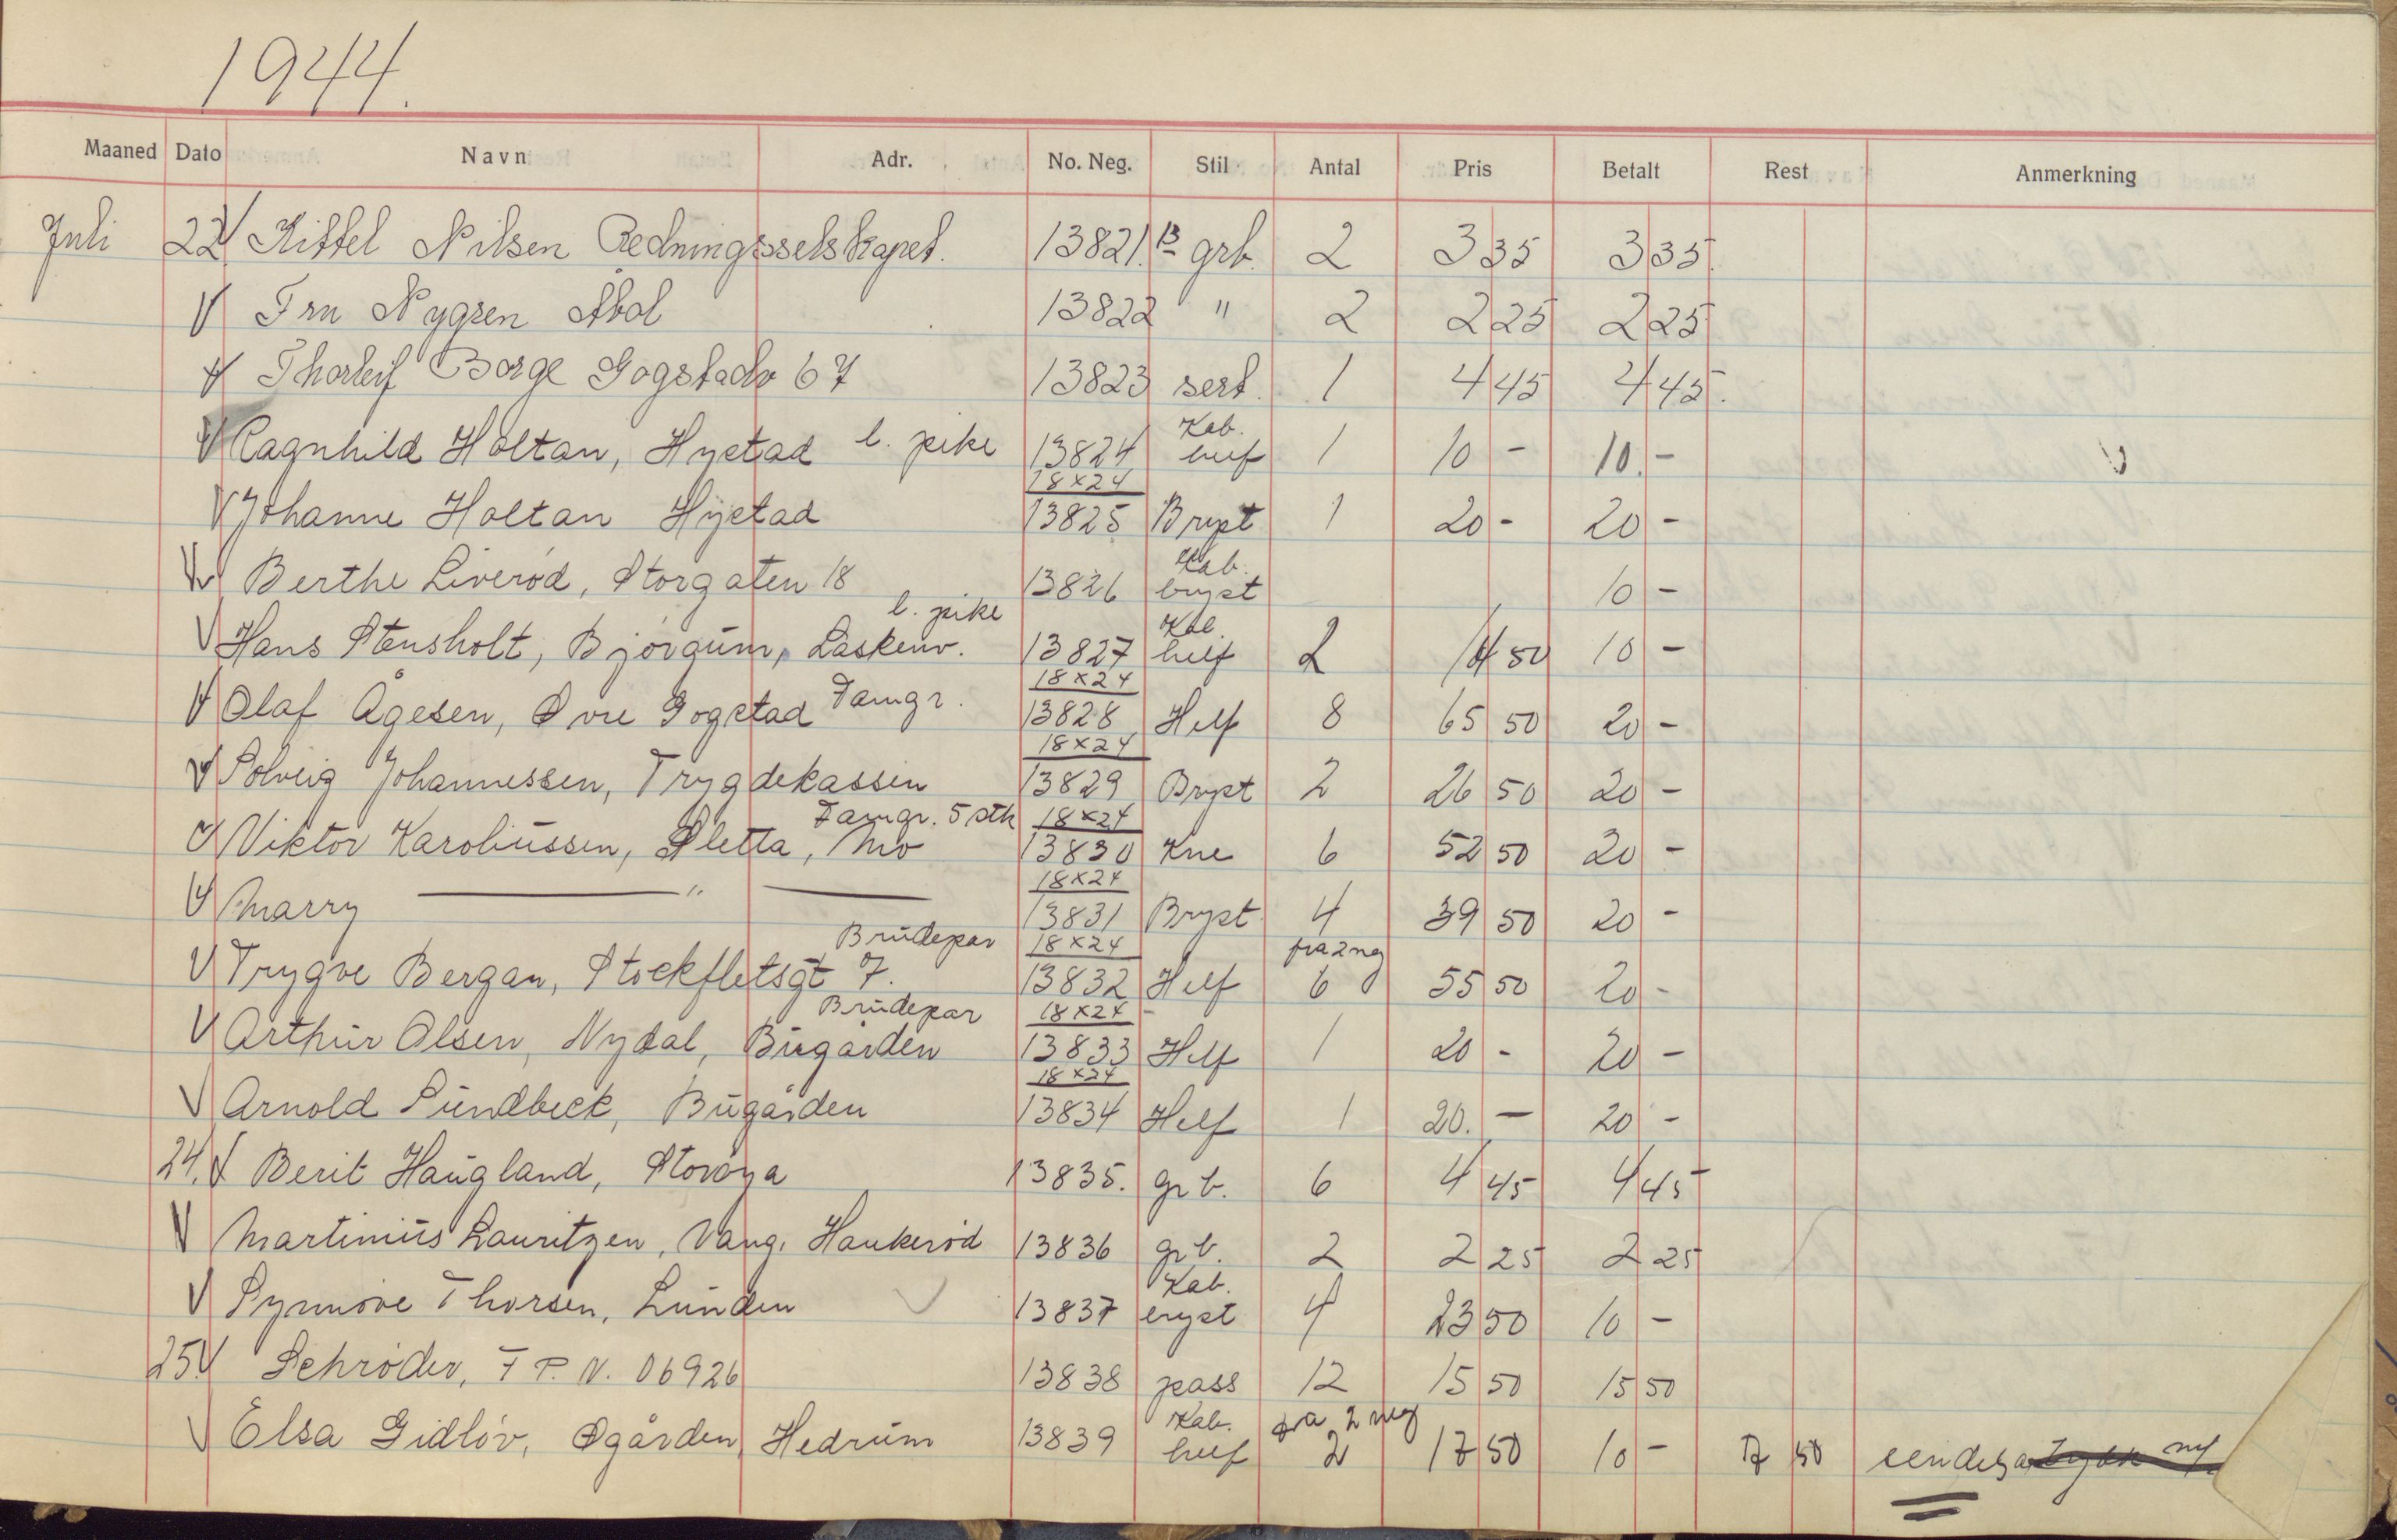 1944.
Maaned Dato Navn Adr. No. Neg. Stil Antal Pris Betalt Rest Anmerkning
Juli 22 Kittel Nilsen Redningsselskapet. 13821. B grb. 2 3 35 3 35.
V Fru Nygren Åbol 13822 " 2 2 25 2 25
V Thorleif Borge Gogstadv 67 13823 sert. 1 4 45 4 45.
l. pike Kab.
V Ragnhild Holtan, Hystad 13824 helf 1 10 - 10.-
18x24
V Johanne Holtan Hystad 13825 Bryst 1 20 - 20 -
Kab.
V Berthe Liverød, Storgaten 18 13826 bryst 10 -
l. pike Kab.
V Hans Stensholt, Bjørgum, Låskenv. 13827 helf 2 14 50 10 -
Famgr. 18x24
V Olaf Ågesen, Øvre Gogstad 13828 Helf 8 65 50 20 -
18x24
V Solveig Johannessen, Trygdekassen 13829 Bryst 2 26 50 20 -
Famgr. 5 stk 18x24
V Viktor Karoliussen, Sletta, Mo 13830 Kne 6 52 50 20 -
18x24
V Marry — " — 13831 Bryst 4 39 50 20 -
Brudepar 18x24 fra 2 neg
V Trygve Bergan, Stockfletsgt 7. 13832 Helf 6 55 50 20 -
Brudepar 18x24
V Arthur Olsen, Nydal, Bugården 13833 Helf 1 20 - 20 -
18x24
V Arnold Sundbeck, Bugården 13834 Helf 1 20. - 20 -
24. V Berit Haugland, Storøya 13835. grb. 6 4 45 4 45
V Martinius Lauritzen, Vang, Haukerød 13836 grb. 2 2 25 2 25
Kab.
V Synnøve Thorsen, Lunden 13837 bryst 4 23 50 10 -
25 V Schrøder, F P. N. 06926 13838 pass 12 15 50 15 50
Kab. fra 2 neg
V Elsa Gidløv, Øgården, Hedrum 13839 helf 2 17 50 10 - 7 50 sendes